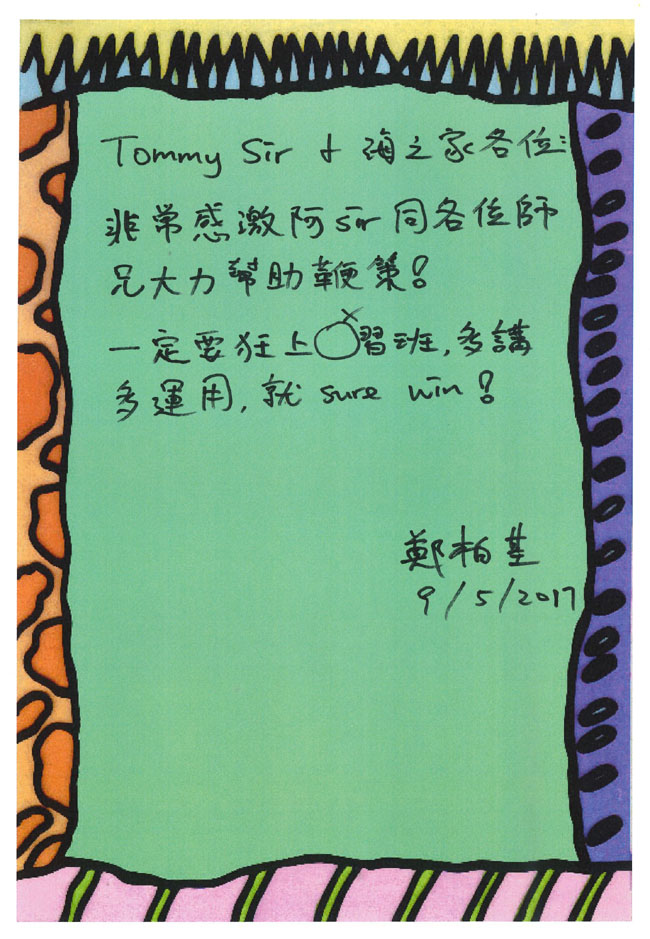 Tommy Sir & 海之家各位:
非常感激阿sir同各位師
兄大力幫助鞭策!
一定要狂上〇習班,多講
多運用,就 sure win!
鄭柏基
9/5/2017